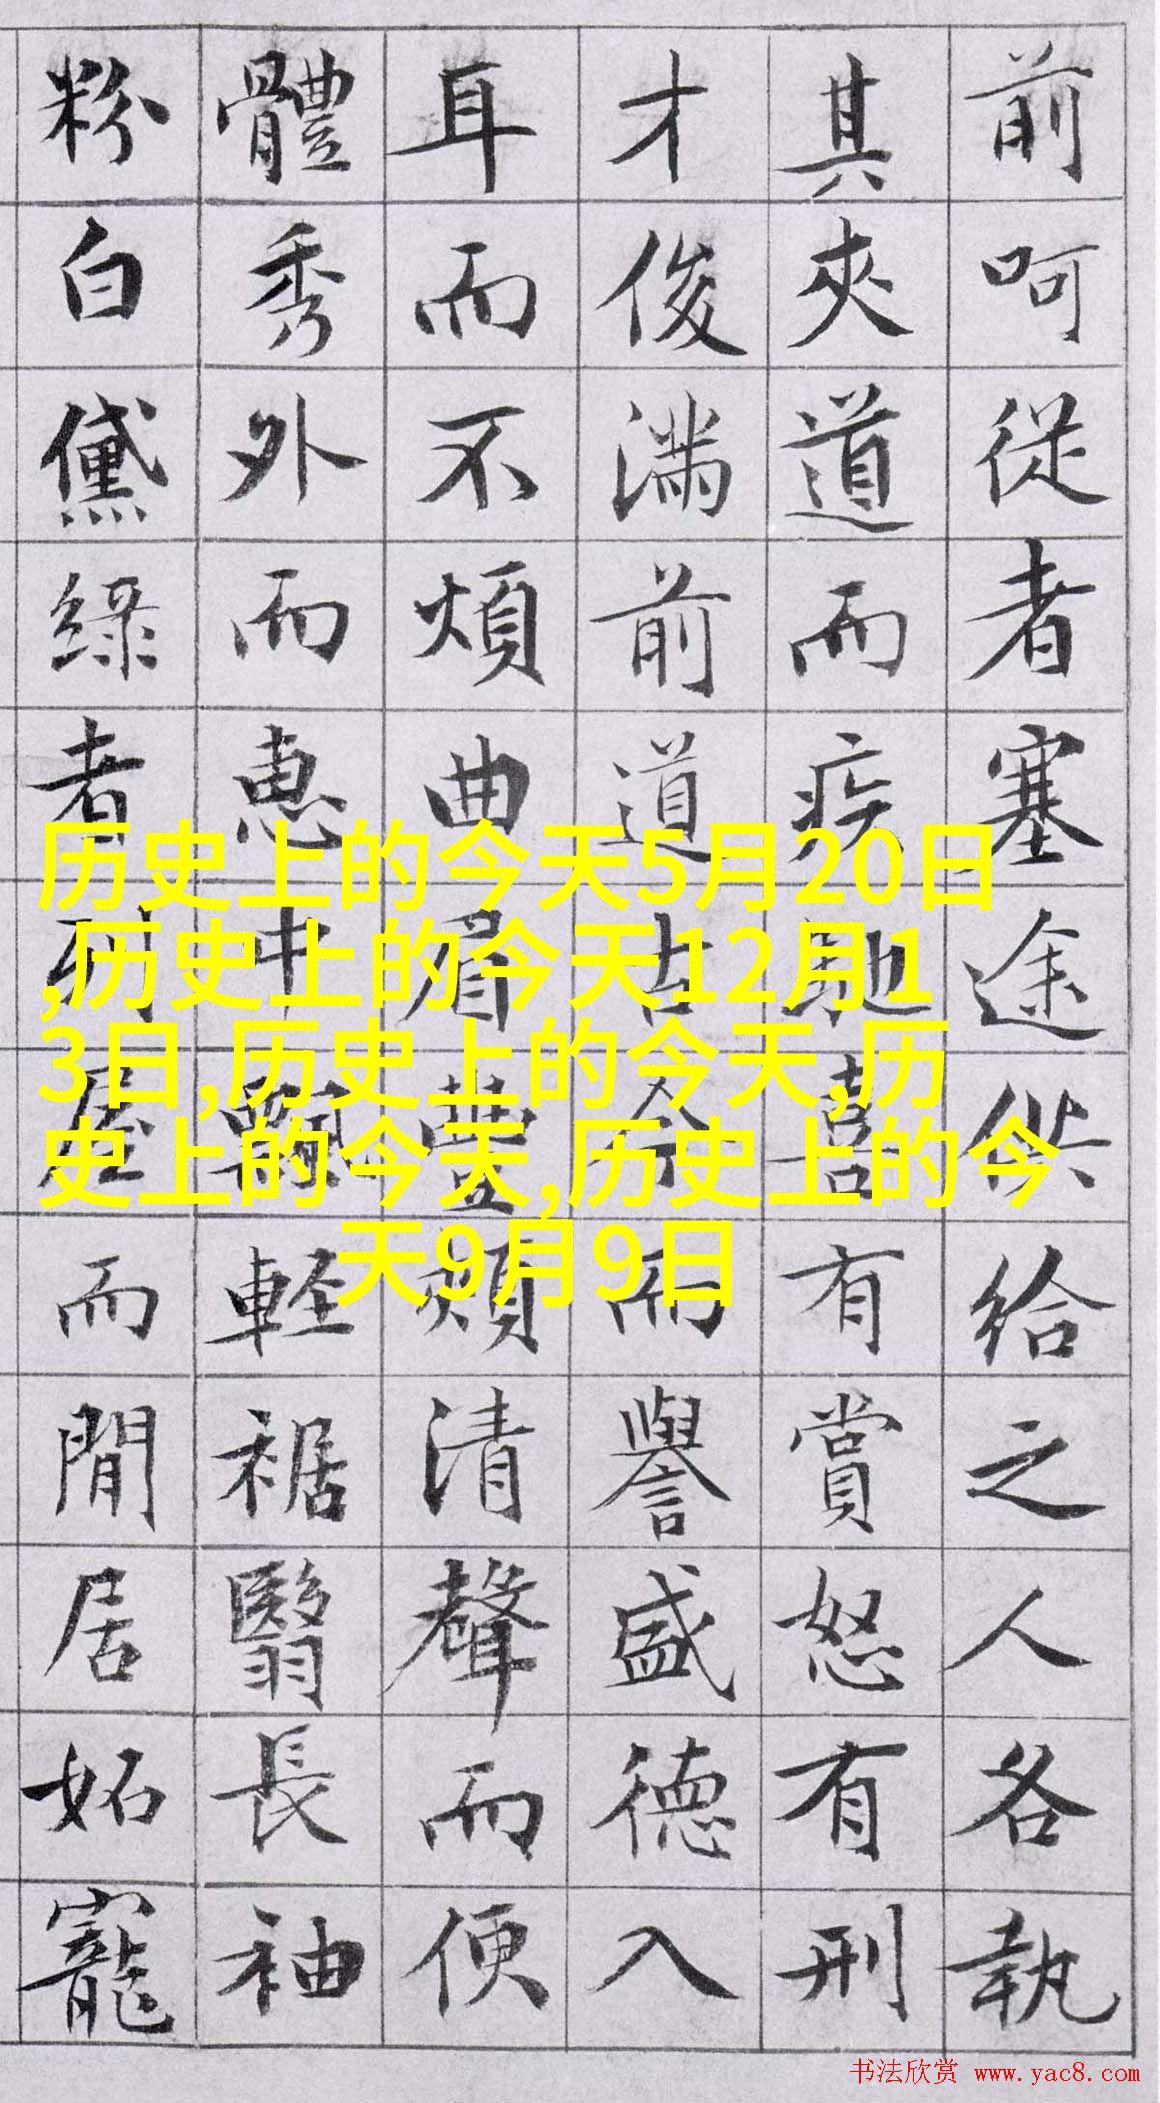 前呵從者塞途供給之人各執
其夾道而疾馳喜有賞怒有刑
才俊滿前道古今而譽盛德入
耳而不煩曲眉豐頰清聲而便
體秀外而惠中飄輕裾翳長袖
粉白黛綠者列屋而閒居妬寵
历史上的今天5月20日
,历史上的今天12月1
3日,历史上的今天,历
史上的今天,历史上的今
天9月9日
书法欣赏 www.yac8.com